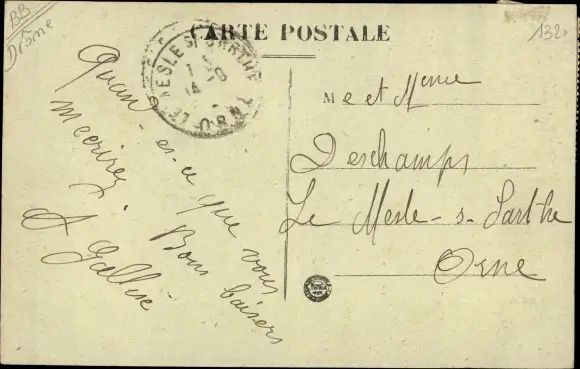 BB
Drôme
1320
CARTE POSTALE
LE MESLE-S-SARTHE
ORNE
Quan-es-ce que vous
mecrirez
Bons baisers
M e et Mme
Deschamps
Le Mesle-s-Sarthe
Orne